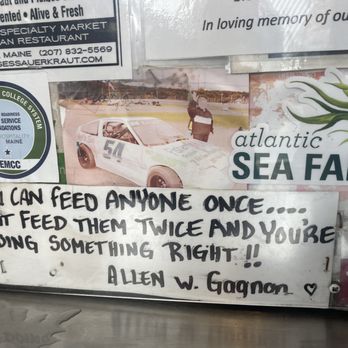 ented • Alive & Fresh
SPECIALTY MARKET
AN RESTAURANT
MAINE (207) 832-5569
SESSAUERKRAUT.COM
In loving memory of ou
COLLEGE SYSTEM
READINESS
SERVICE
HOSPITALITY
MAINE
EMCC
54
atlantic
SEA FA
CAN FEED ANYONE ONCE....
T FEED THEM TWICE AND YOU'RE
OING SOMETHING RIGHT!!
ALLEN W. Gagnon